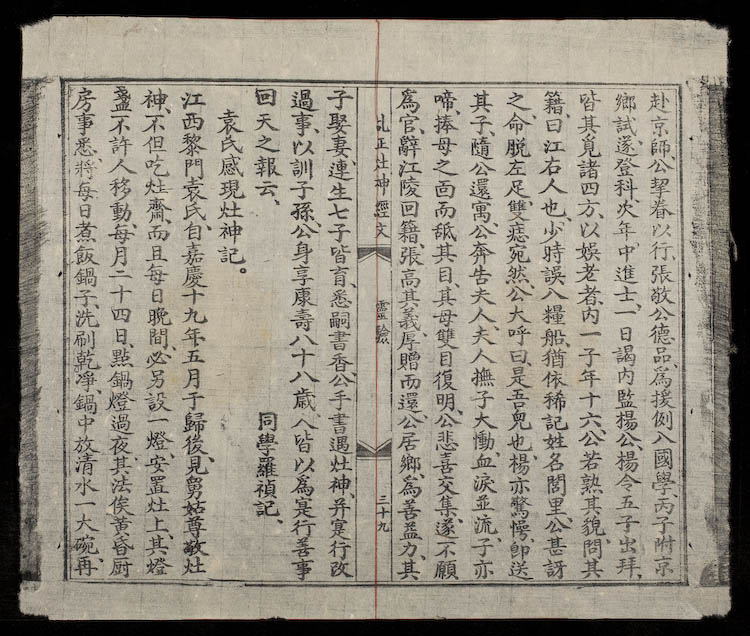 赴京師、公挈眷以行、張敬公德品、為援例入國學、丙子附京
鄉試、遂登科、次年中進士、一日謁內監楊公、楊令五子出拜、
皆其覓諸四方、以娛老者、內一子年十六、公若熟其貌、問其
籍、曰江右人也、少時誤入糧船、猶依稀記姓名閭里、公甚訝
之、命脫左足、雙痣宛然、公大呼曰、是吾兒也、楊亦驚愕、卽送
其子、隨公還寓、公奔告夫人、夫人撫子大慟、血淚並流、子亦
啼、捧母之面而舐其目、其母雙目復明、公悲喜交集、遂不願
為官、辭江陵回籍、張高其義、厚贈而還、公居鄉、為善益力、其
乩正灶神經文
靈驗
三十九
子娶妻、連生七子皆育、悉嗣書香、公手書遇灶神、并寔行改
過事、以訓子孫、公身享康壽八十八歲、人皆以為寔行善事
回天之報云、
同學羅禎記、
袁氏感現灶神記。
江西黎門袁氏、自嘉慶十九年五月于歸後、見舅姑尊敬灶
神、不但吃灶齋、而且每日晚間、必另設一燈、安置灶上、其燈
盞不許人移動、每月二十四日、點鍋燈過夜、其法俟黃昏厨
房事悉、將每日煮飯鍋子、洗刷乾凈、鍋中放清水一大碗、再